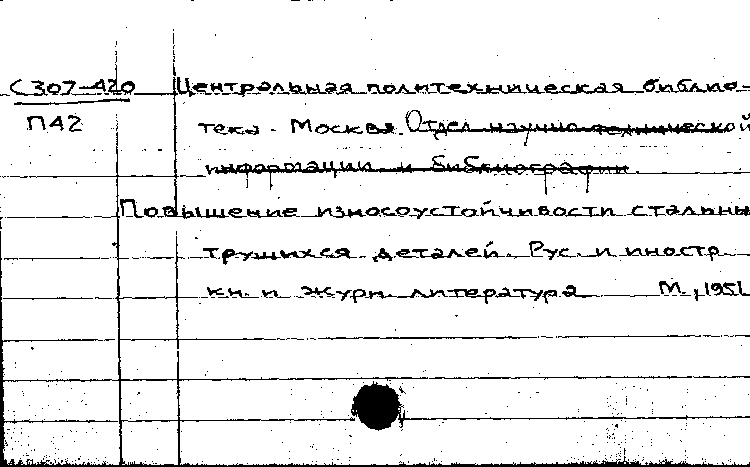 С307-420 Центральная политехническая библио-
П42 тека. Москва. Отдел научно-технической
информации и библиографии.
Повышение износоустойчивости стальны
трущихся деталей. Рус. и иностр.
кн. и журн. литература М., 195